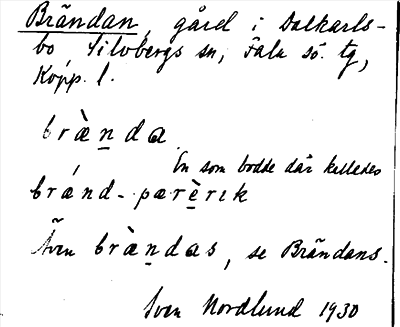 Brändan, gård i Dalkarls-
bo Silvbergs sn, Falu sö. tg,
Kopp. l.
brànda
En som bodde där kalledes
bránd-pærèrɪk
Även bràndas, se Brändans.
Sven Nordlund 1930